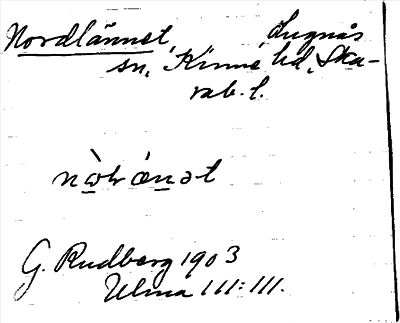 Nordlännet, Lugnås
sn, Kinne hd, Ska-
rab. l.
G. Rudberg 1903
Ulma 111:111.